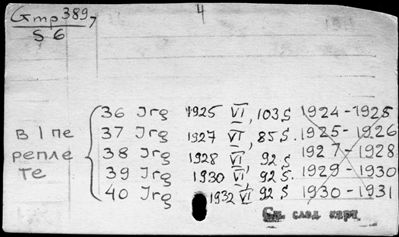 4
Gmp 389,
S 6
в 1 пе
репле
те
36 Jrg 1925 VI, 103 S. 1924-1925
37 Jrg 1927 VI, 85 S. 1925-1926
38 Jrg 1928 VI, 92 S 1927-1928
39 Jrg 1930 VI, 92 S. 1929-1930
40 Jrg 1932 VI, 92 S 1930-1931
См. след. карт.